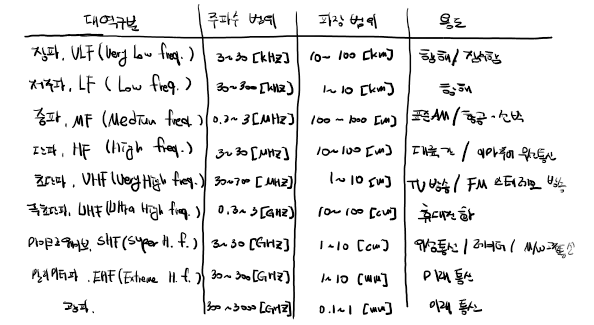 대역구분 주파수 범위 파장 범위 용도
장파, VLF (Very Low freq.) 3~30 [kHz] 10~100 [km] 항해/잠수함
저주파, LF (Low freq.) 30~300 [kHz] 1~10 [km] 항해
중파, MF (Medium freq.) 0.3~3 [MHz] 100~1000 [m] 표준AM/항공·선박
단파, HF (High freq.) 3~30 [MHz] 10~100 [m] 대륙간/아마추어 무선통신
초단파, VHF (Very High freq.) 30~300 [MHz] 1~10 [m] TV방송/FM 스테레오 방송
극초단파, UHF (Ultra High freq.) 0.3~3 [GHz] 10~100 [cm] 휴대전화
마이크로웨이브, SHF (Super H.f.) 3~30 [GHz] 1~10 [cm] 위성통신/레이더/M/W 통신
밀리미터파, EHF (Extreme H.f.) 30~300 [GHz] 1~10 [mm] 미래 통신
광파. 300~3000 [GHz] 0.1~1 [mm] 미래 통신